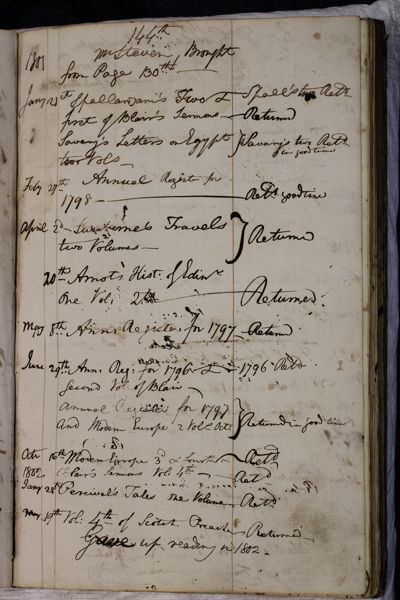 144th
1801 Mr Steven Brought
from Page 130th
Jany 21st Spallanzani's Two & Spall's two Retd
first of Blair's Sermons — Returnd
Savary's Letters on Egypt } Savary's two Retd
two Vols — in good time
Feby 24th Annual Register for
1798 — Retd good time
April 2d Swinburne's Travels
two Volumes — } Returnd
20th Arnot's Hist. of Edinr
One Vol: — Returned
May 8th Ann: Register for 1797 — Returnd
June 29th Ann: Reg: for 1796 & — 1796 Retd
Second Vol. of Blair —
Annual Register for 1797
And Modern Europe 2 Vols } Returnd in good time
Octr 16th Modern Europe 3d & fourth — Retd
1802 Blair's Sermons Vol: 4th — Retd
Jany 28th Percival's Tales One Volume — Retd
May 19th Vol: 4th of Scotch Preacher — Returned
Gave up reading in 1802 —